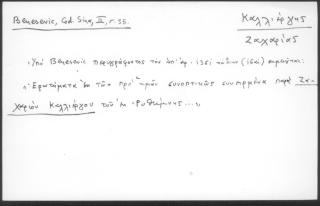 Beneševič, Gd. Sing, III, σ. 35.
Καλλιέργης
Ζαχαρίας
Ὑπὸ Beneševič περιγράφοντος τὸν ὑπ' ἀρ. 1351 κώδικα (16αι) σημειοῦται:
"Ἐρωτήματα ἐκ τῶν πρὸ ἡμῶν συνοπτικῶς συνηγμένα παρὰ Ζα-
χαρίου Καλλιέργου τοῦ ἐκ Ρυθύμνης ...,